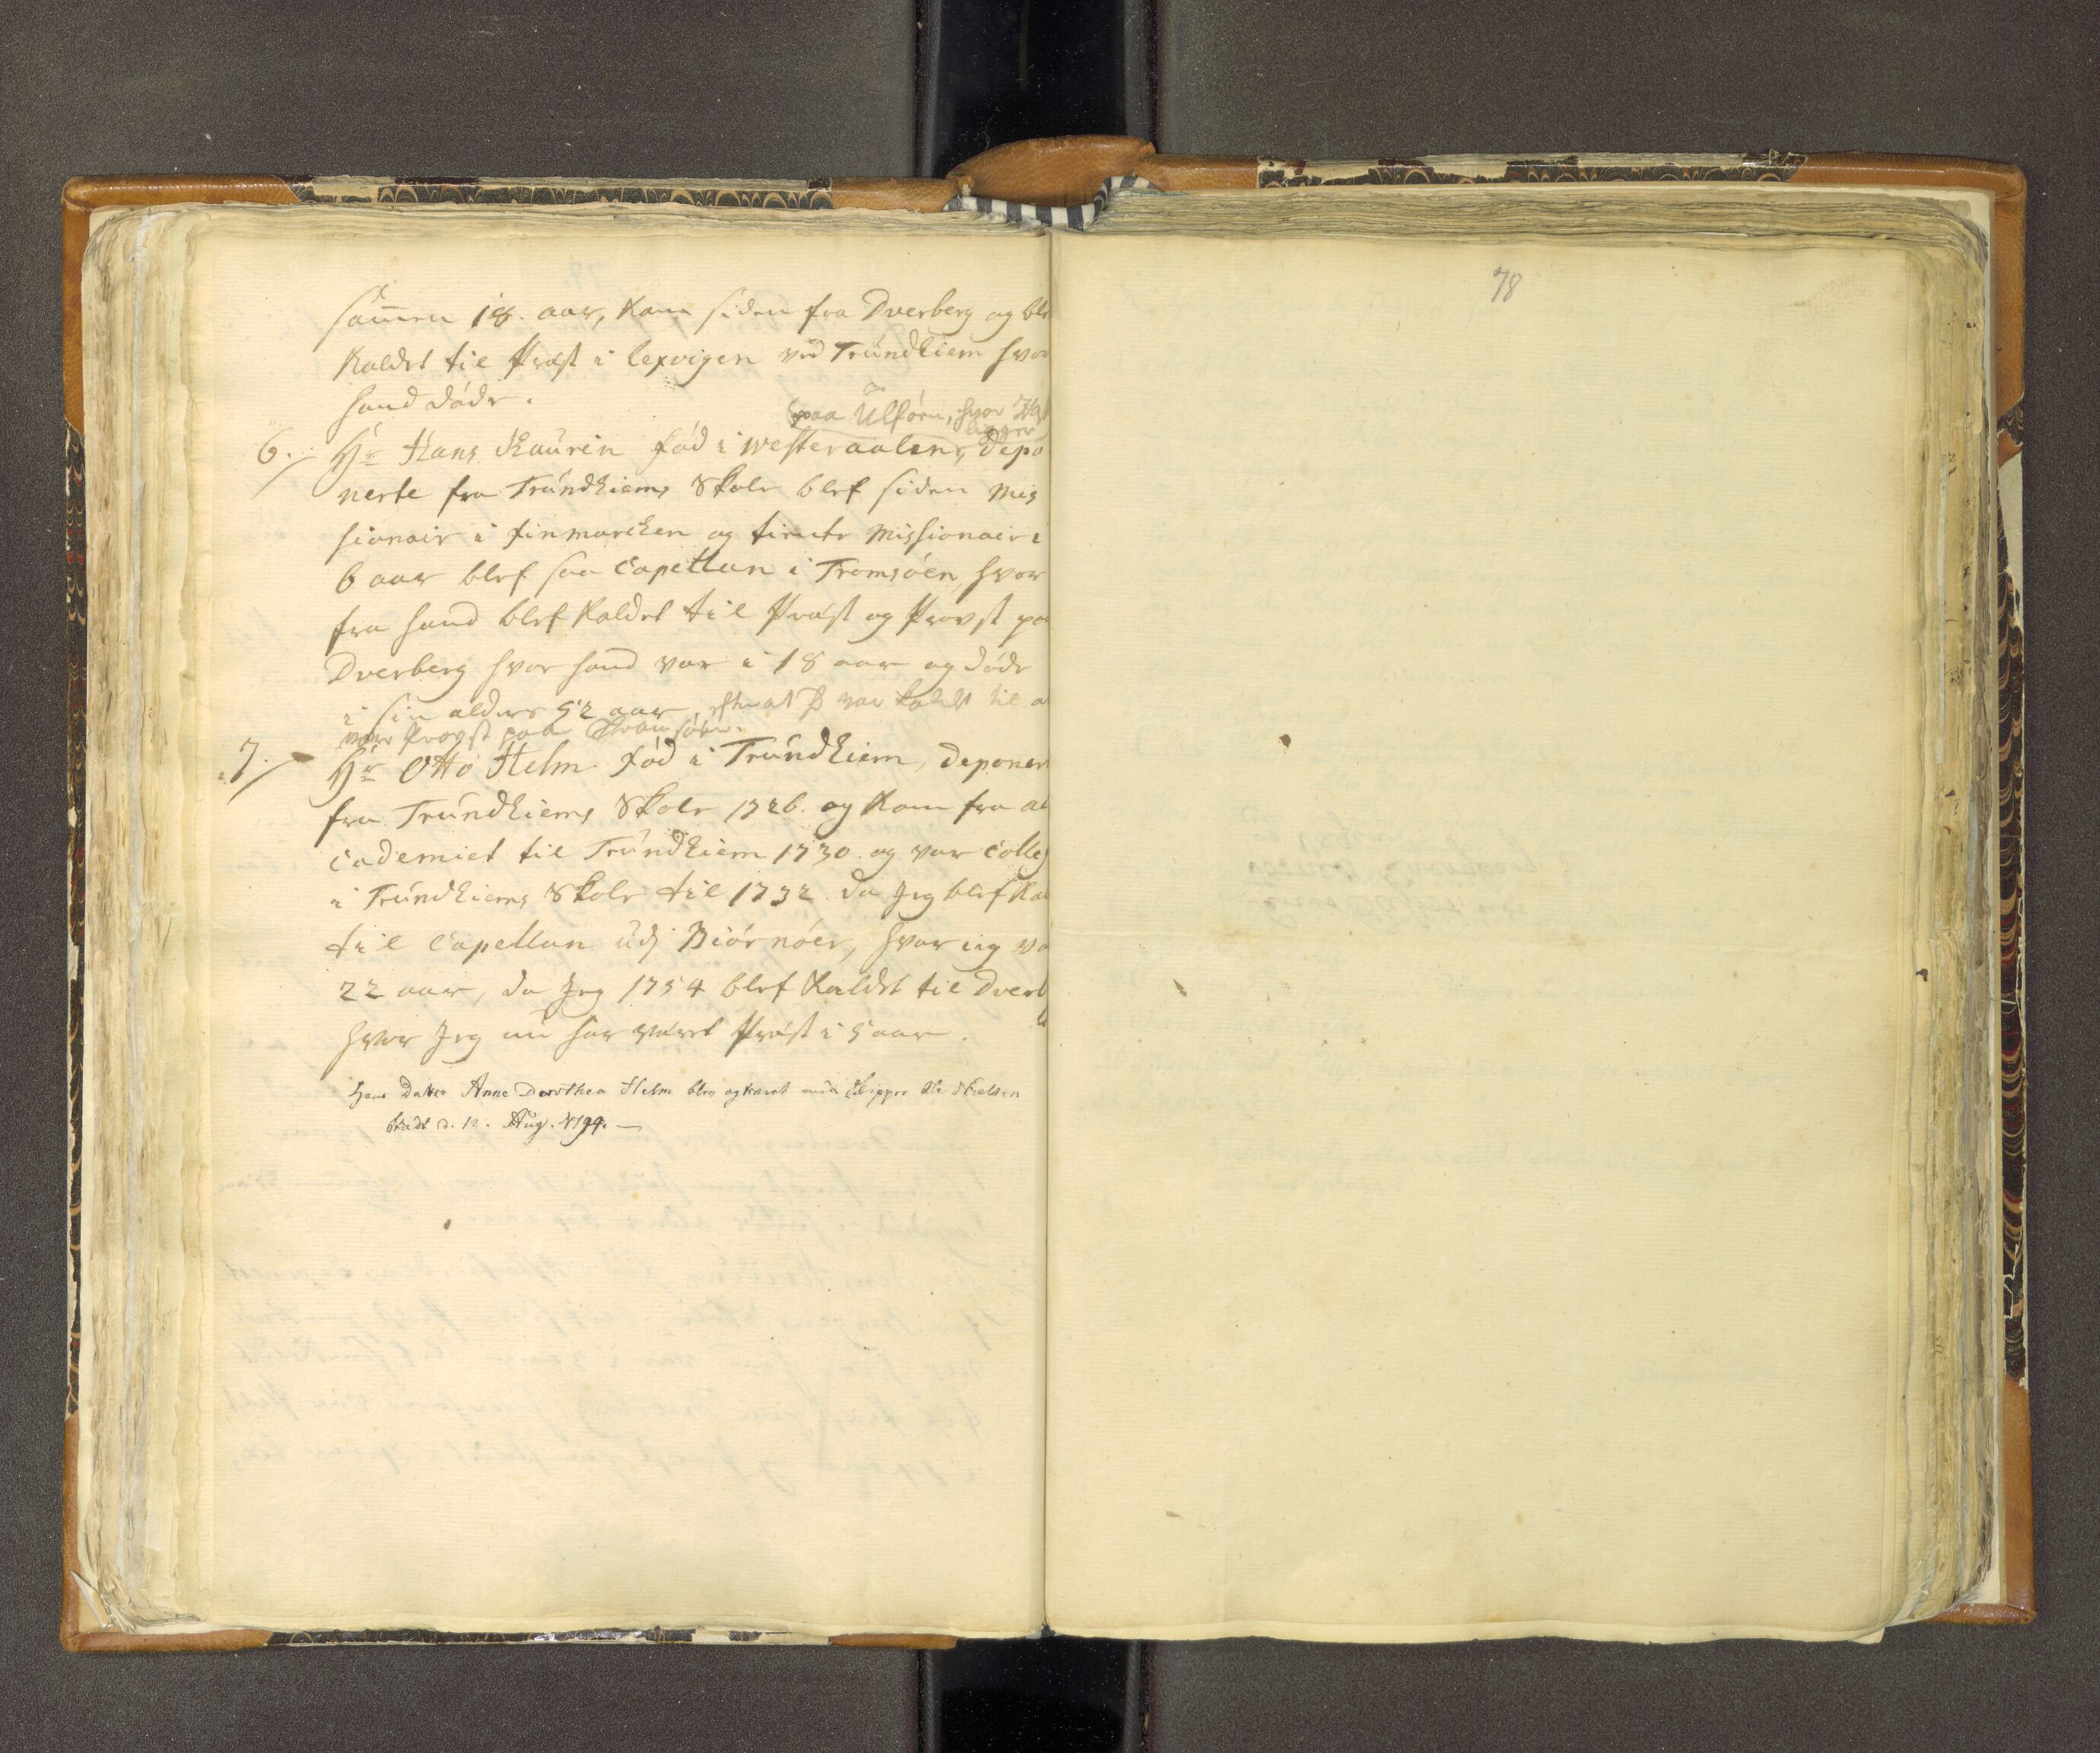 78
sam̄en 18. aar, kam siden fra Dverberg og ble
kaldet til Præst i Lexvigen ved Trundhiem hvor
hand døde.
(paa Ulføen, hvor
ligger)
6. Hr Hans Kaurin fød i westeraalens, Depo
nerte fra Trundhiems Skole blef siden Mis
sionair i finmarcken og tiente Missionair i
6 aar blef saa Capellan i Tromsøen, hvor
fra hand blef kaldet til Præst og Provst paa
Dverberg hvor hand var i 18 aar og døde
i sin alders 52 aar, efter at var kaldet til a
være Provst paa
7. Hr Otto Helm fød i Trundhiem, deponer
fra Trundhiems Skole 1726. og kom fra ac
cademiet til Trundhiem 1730. og var Colleg
i Trundhiems Skole til 1732. da Jeg blef kal
til Capellan udj Biørnøer, hvor ieg va
22 aar, da Jeg 1754 blef kaldet til Dverb
hvor Jeg nu har været Præst i 5 aar.
Hans Datter Anne Dorothea Helm blev ægteviet med Skipper Ole Nielsen
d. 12. Aug. 1794.